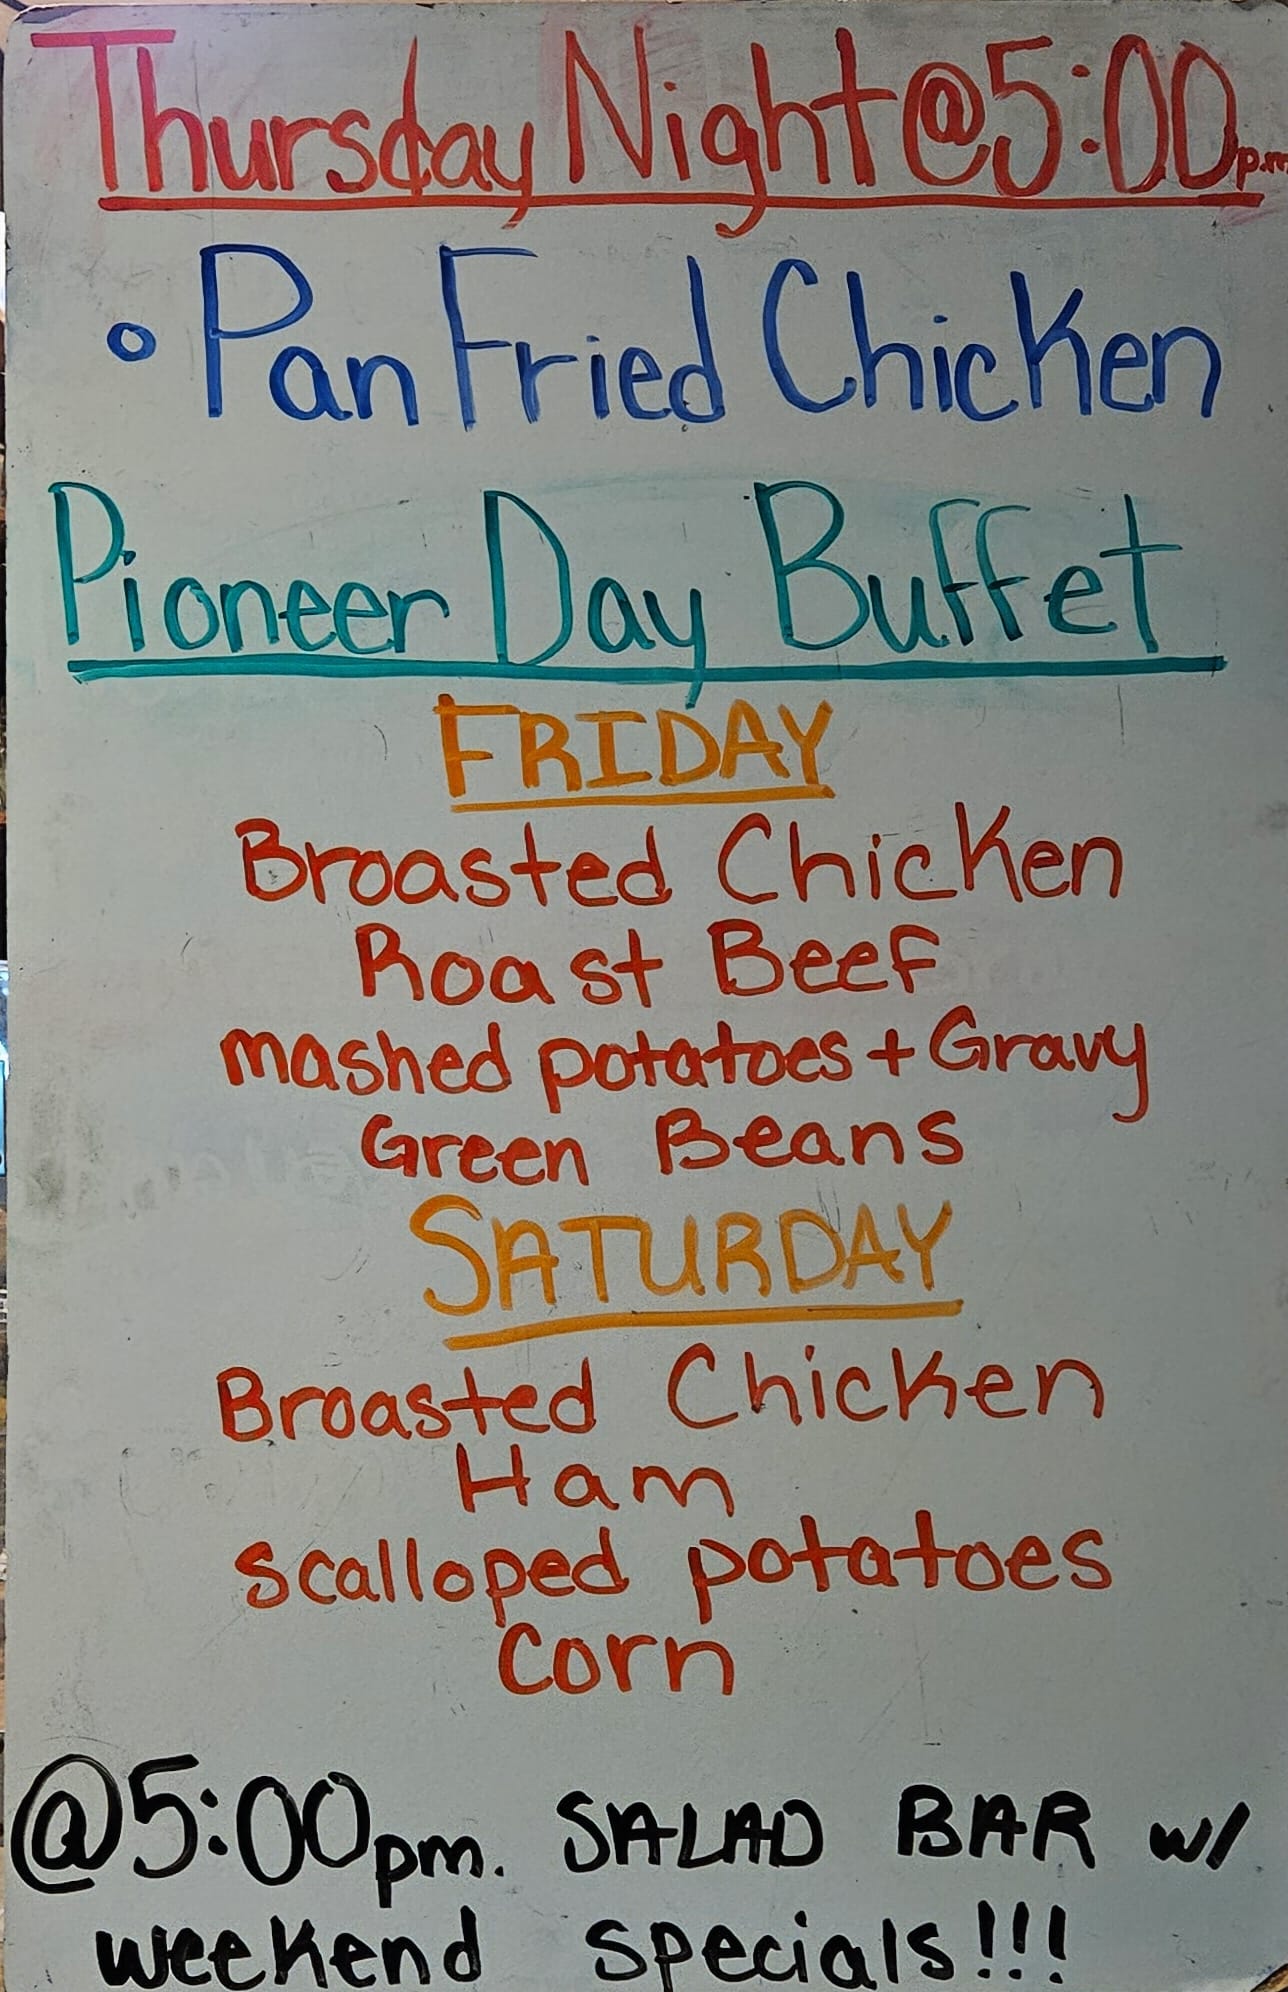 Thursday Night @ 5:00 p.m
• Pan Fried Chicken
Pioneer Day Buffet
FRIDAY
Broasted Chicken
Roast Beef
mashed potatoes + Gravy
Green Beans
SATURDAY
Broasted Chicken
Ham
scalloped potatoes
Corn
@5:00pm. SALAD BAR w/
weekend specials!!!